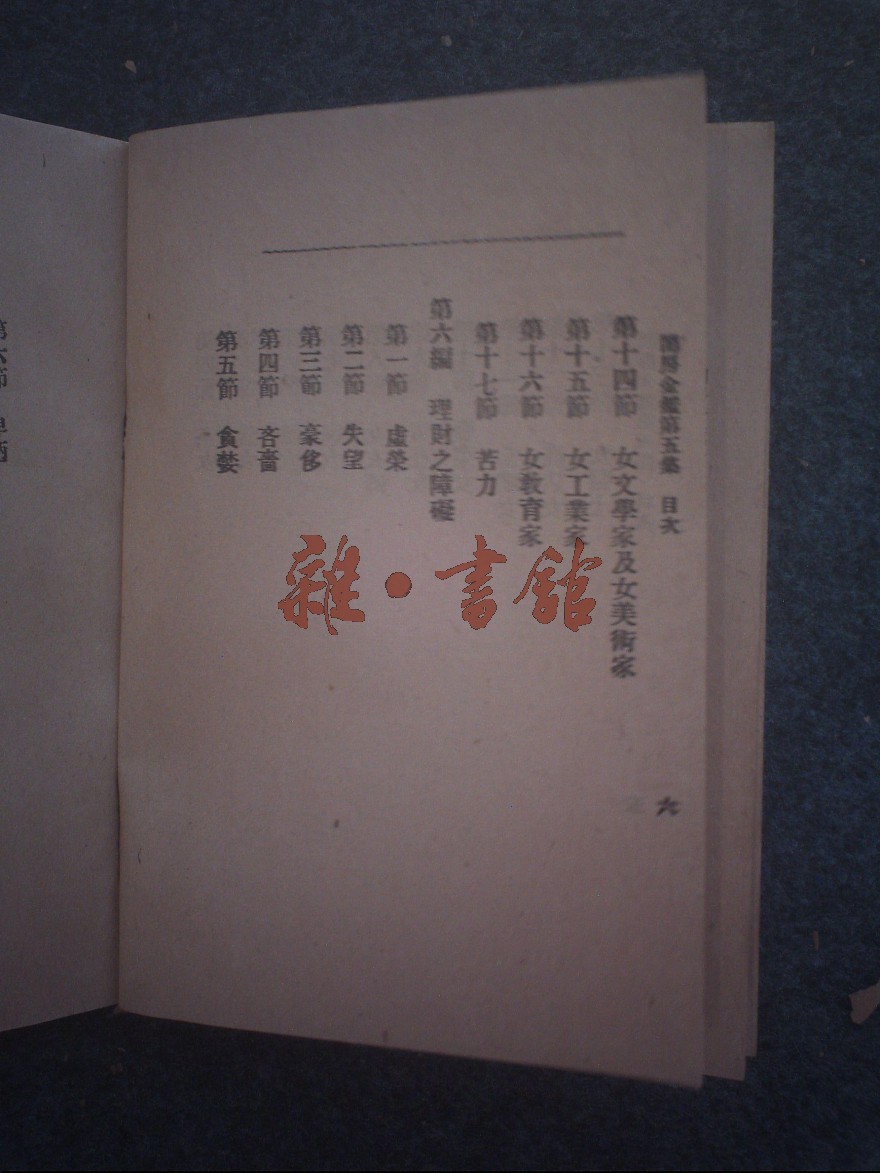 閨房金鑑第五集 目次
六
第十四節 女文學家及女美術家
第十五節 女工業家
第十六節 女教育家
第十七節 苦力
第六編 理財之障礙
第一節 虛榮
第二節 失望
第三節 豪侈
第四節 吝嗇
第五節 貪婪
第六節
雜·書館